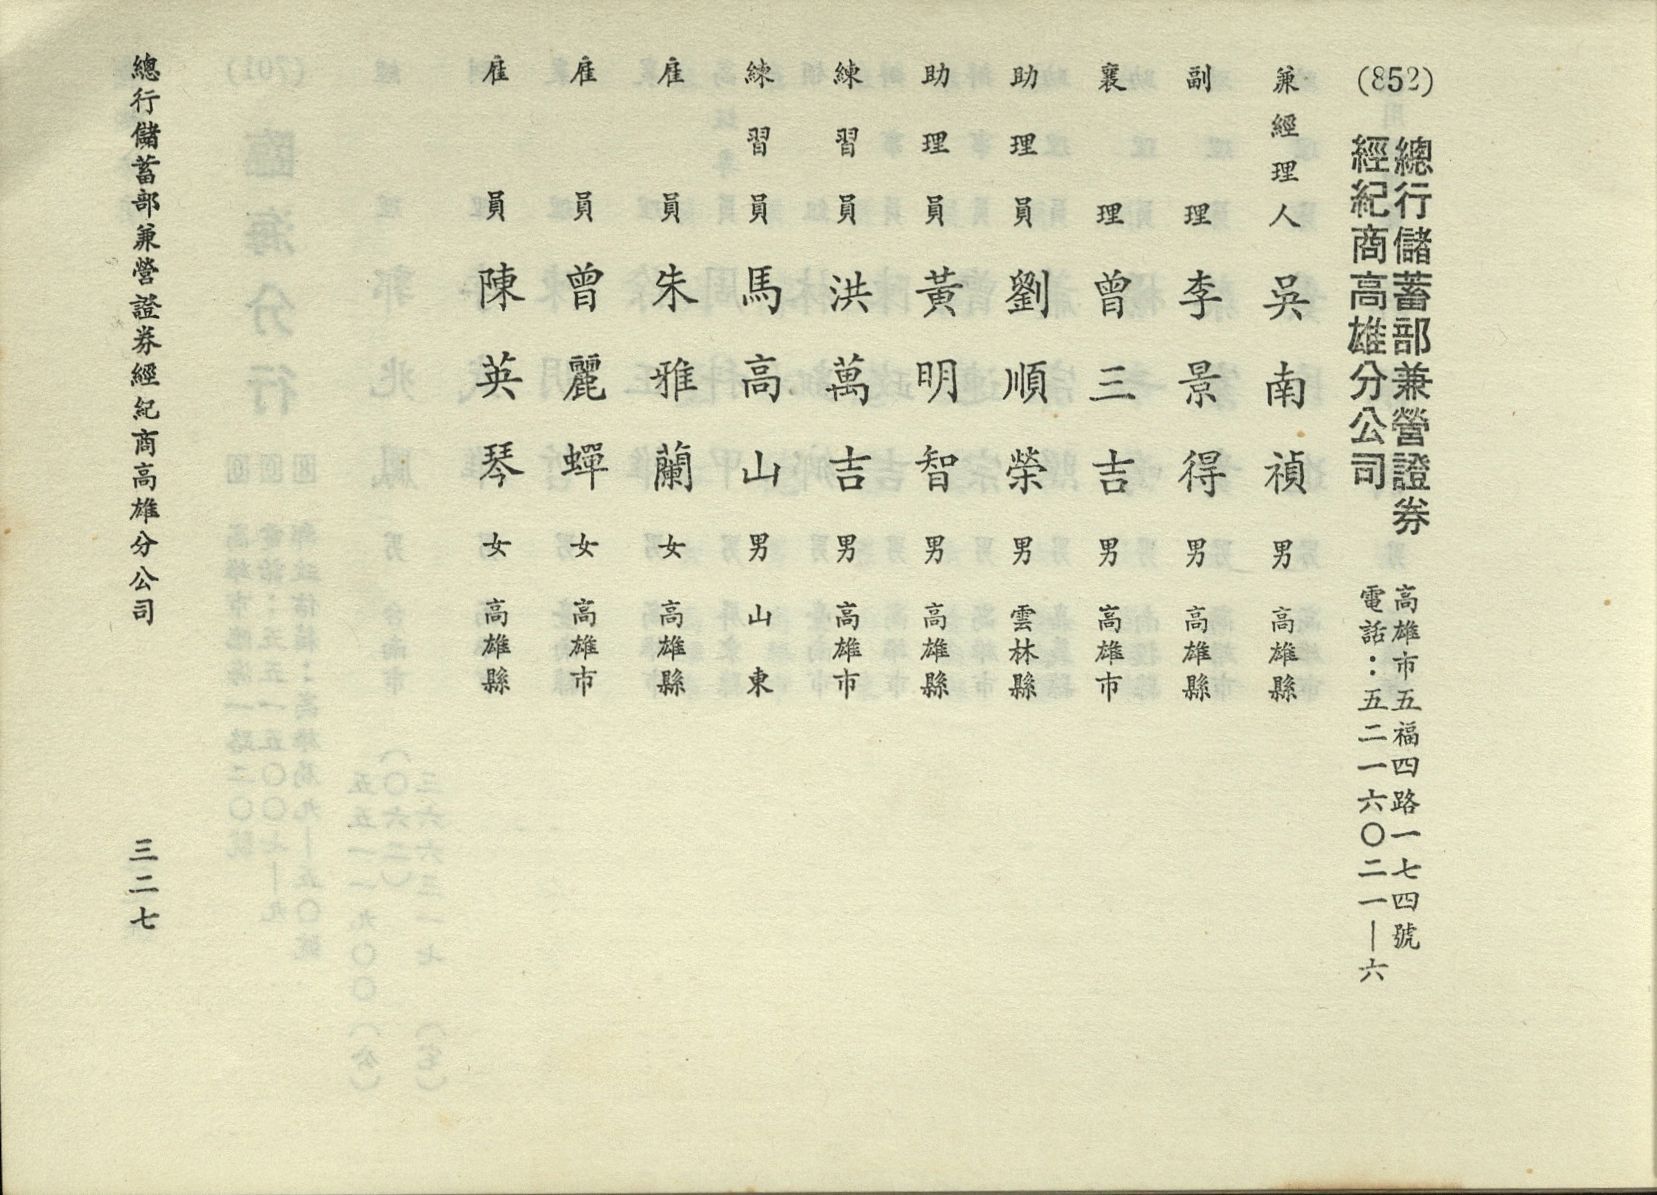 (852)
總行儲蓄部兼營證券
經紀商高雄分公司
高雄市五福四路一七四號
電話：五二一六〇二一—六
兼經理人 吳南禎 男 高雄縣
副理 李景得 男 高雄縣
襄理 曾三吉 男 高雄市
助理員 劉順榮 男 雲林縣
助理員 黃明智 男 高雄縣
練習員 洪萬吉 男 高雄市
練習員 馬高山 男 山東
雇員 朱雅蘭 女 高雄縣
雇員 曾麗蟬 女 高雄市
雇員 陳英琴 女 高雄縣
總行儲蓄部兼營證券經紀商高雄分公司
三二七